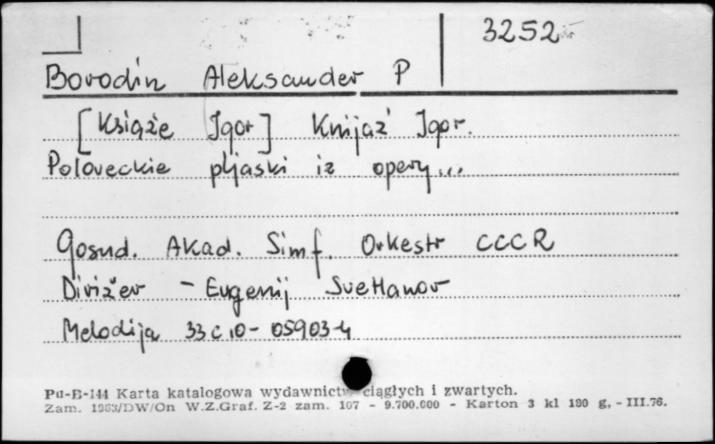 3252
Borodin Aleksander P
[Książe Igor] Knijaź Igor.
Poloveckie pljaski iz opery...
Gosud. Akad. Simf. Orkestr CCCR
Diriżer - Eugenij Svetlanov
Melodija 33 c 10 - 05903-4
Pu-B-144 Karta katalogowa wydawnictw ciągłych i zwartych.
Zam. 1963/DW/On W.Z.Graf. Z-2 zam. 107 - 9.700.000 - Karton 3 kl 180 g, - III.76.